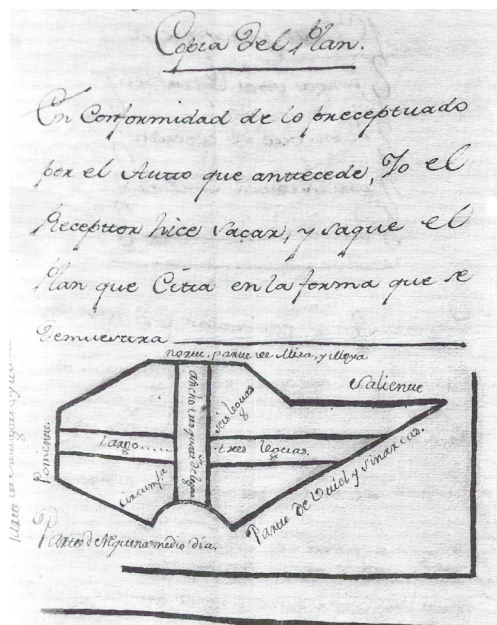 Copia del Plan.
En Conformidad de lo preceptuado
por el Auto que antecede, Yo el
Receptor hice sacar, y saque el
Plan que Citta en la forma que se
demuestra
norte, parte de Mira, y Moya
Saliente
ancho tres quartos de legua
seis leguas
Ponente.
largo...... tres leguas.
Circumfa
Parte de Utiel y Sinarcas.
Parte de Requena medio dia.